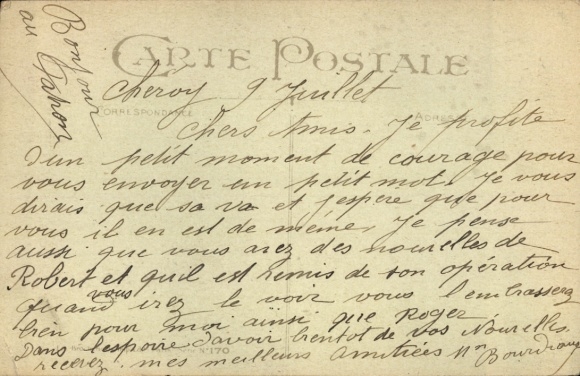 Bonjour
au
CARTE POSTALE
CORRESPONDANCE
ADRES
Chéroy 9 Juillet
Chers Amis. Je profite
d'un petit moment de courage pour
vous envoyer un petit mot. Je vous
dirais que sa va et j'espère que pour
vous il en est de même. Je pense
aussi que vous avez des nouvelles de
Robert et qu'il est remis de son opération
quand vous irez le voir vous l'embrasserez
bien pour moi ainsi que Roger
Dans l'espoire d'avoir bientot de vos Nouvelles
N° 170
recevez mes meilleurs amitiées